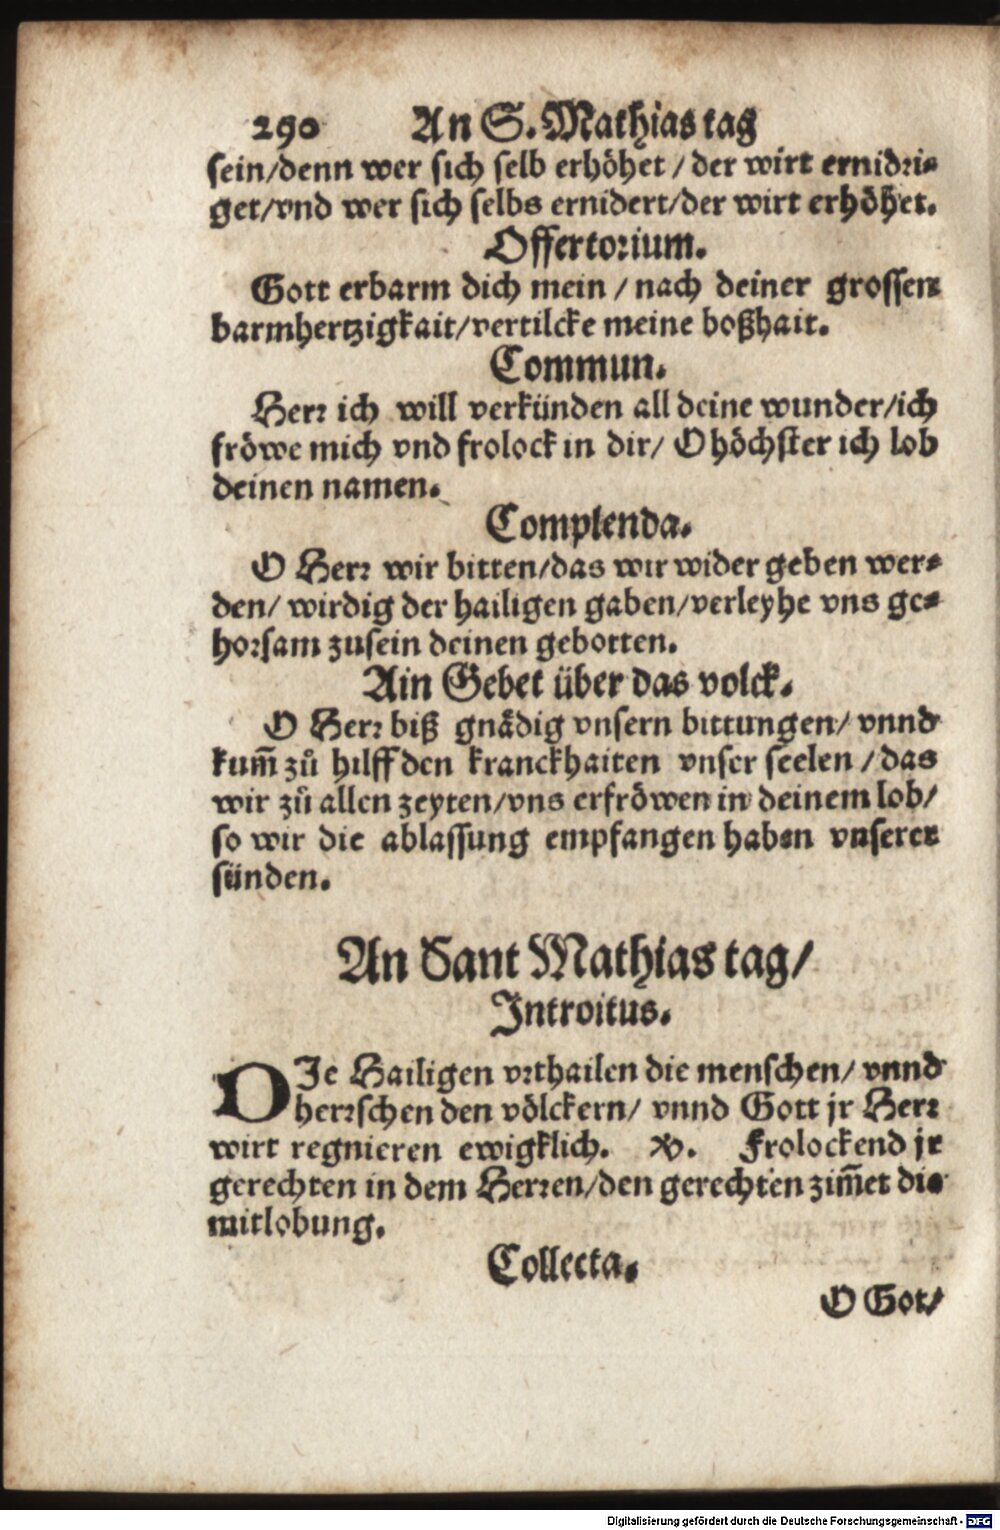 290 An S. Mathias tag
sein/denn wer sich selb erhöhet / der wirt ernidri-
get/vnd wer sich selbs ernidert/der wirt erhöhet.
Offertorium.
Gott erbarm dich mein / nach deiner grossen
barmhertzigkait/vertilcke meine boßhait.
Commun.
Herr ich will verkünden all deine wunder/ich
fröwe mich vnd frolock in dir/ O höchster ich lob
deinen namen.
Complenda.
O Herr wir bitten/das wir wider geben wer-
den/ wirdig der hailigen gaben/verleyhe vns ge-
horsam zusein deinen gebotten.
Ain Gebet über das volck.
O Herr biß gnådig vnsern bittungen/ vnnd
kum̃ zů hilff den kranckhaiten vnser seelen / das
wir zů allen zeyten/vns erfröwen in deinem lob/
so wir die ablassung empfangen haben vnserer
sünden.
An Sant Mathias tag/
Introitus.
DJe Hailigen vrthailen die menschen/ vnnd
herrschen den völckern/ vnnd Gott jr Herr
wirt regnieren ewigklich. ℣. Frolockend jr
gerechten in dem Herren/den gerechten zim̃et die
mitlobung.
Collecta.
O Got/
Digitalisierung gefördert durch die Deutsche Forschungsgemeinschaft - DFG